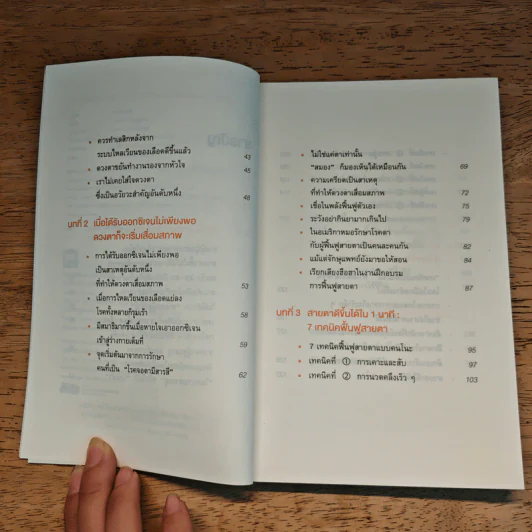 • ควรทำเลสิกหลังจาก
ระบบไหลเวียนของเลือดดีขึ้นแล้ว 43
• ดวงตาขยันทำงานรองจากหัวใจ 45
• เราไม่เคยใส่ใจดวงตา
ซึ่งเป็นอวัยวะสำคัญอันดับหนึ่ง 48
บทที่ 2 เมื่อได้รับออกซิเจนไม่เพียงพอ
ดวงตาก็จะเริ่มเสื่อมสภาพ
• การได้รับออกซิเจนไม่เพียงพอ
เป็นสาเหตุอันดับหนึ่ง
ที่ทำให้ดวงตาเสื่อมสภาพ 53
• เมื่อการไหลเวียนของเลือดแย่ลง
โรคทั้งหลายก็รุมเร้า 57
• มีสมาธิมากขึ้นเมื่อหายใจเอาออกซิเจน
เข้าสู่ร่างกายเต็มที่ 59
• จุดเริ่มต้นมาจากการรักษา
คนที่เป็น "โรคจอตามีสารสี" 62
• ไม่ใช่แค่ตาเท่านั้น
"สมอง" ก็มองเห็นได้เหมือนกัน 69
• ความเครียดเป็นสาเหตุ
ที่ทำให้ดวงตาเสื่อมสภาพ 72
• เชื่อในพลังฟื้นฟูตัวเอง 75
• ระวังอย่ากินยามากเกินไป 79
• ในอเมริกาหมอรักษาโรคตา
กับผู้ฟื้นฟูสายตาเป็นคนละคนกัน 82
• แม้แต่จักษุแพทย์ยังมาขอให้สอน 84
• เรียกเสียงฮือฮาในงานฝึกอบรม
การฟื้นฟูสายตา 87
บทที่ 3 สายตาดีขึ้นได้ใน 1 นาที :
7 เทคนิคฟื้นฟูสายตา
• 7 เทคนิคฟื้นฟูสายตาแบบคนโนะ 95
• เทคนิคที่ ① การเคาะและสับ 97
• เทคนิคที่ ② การนวดคลึงเร็ว ๆ 103